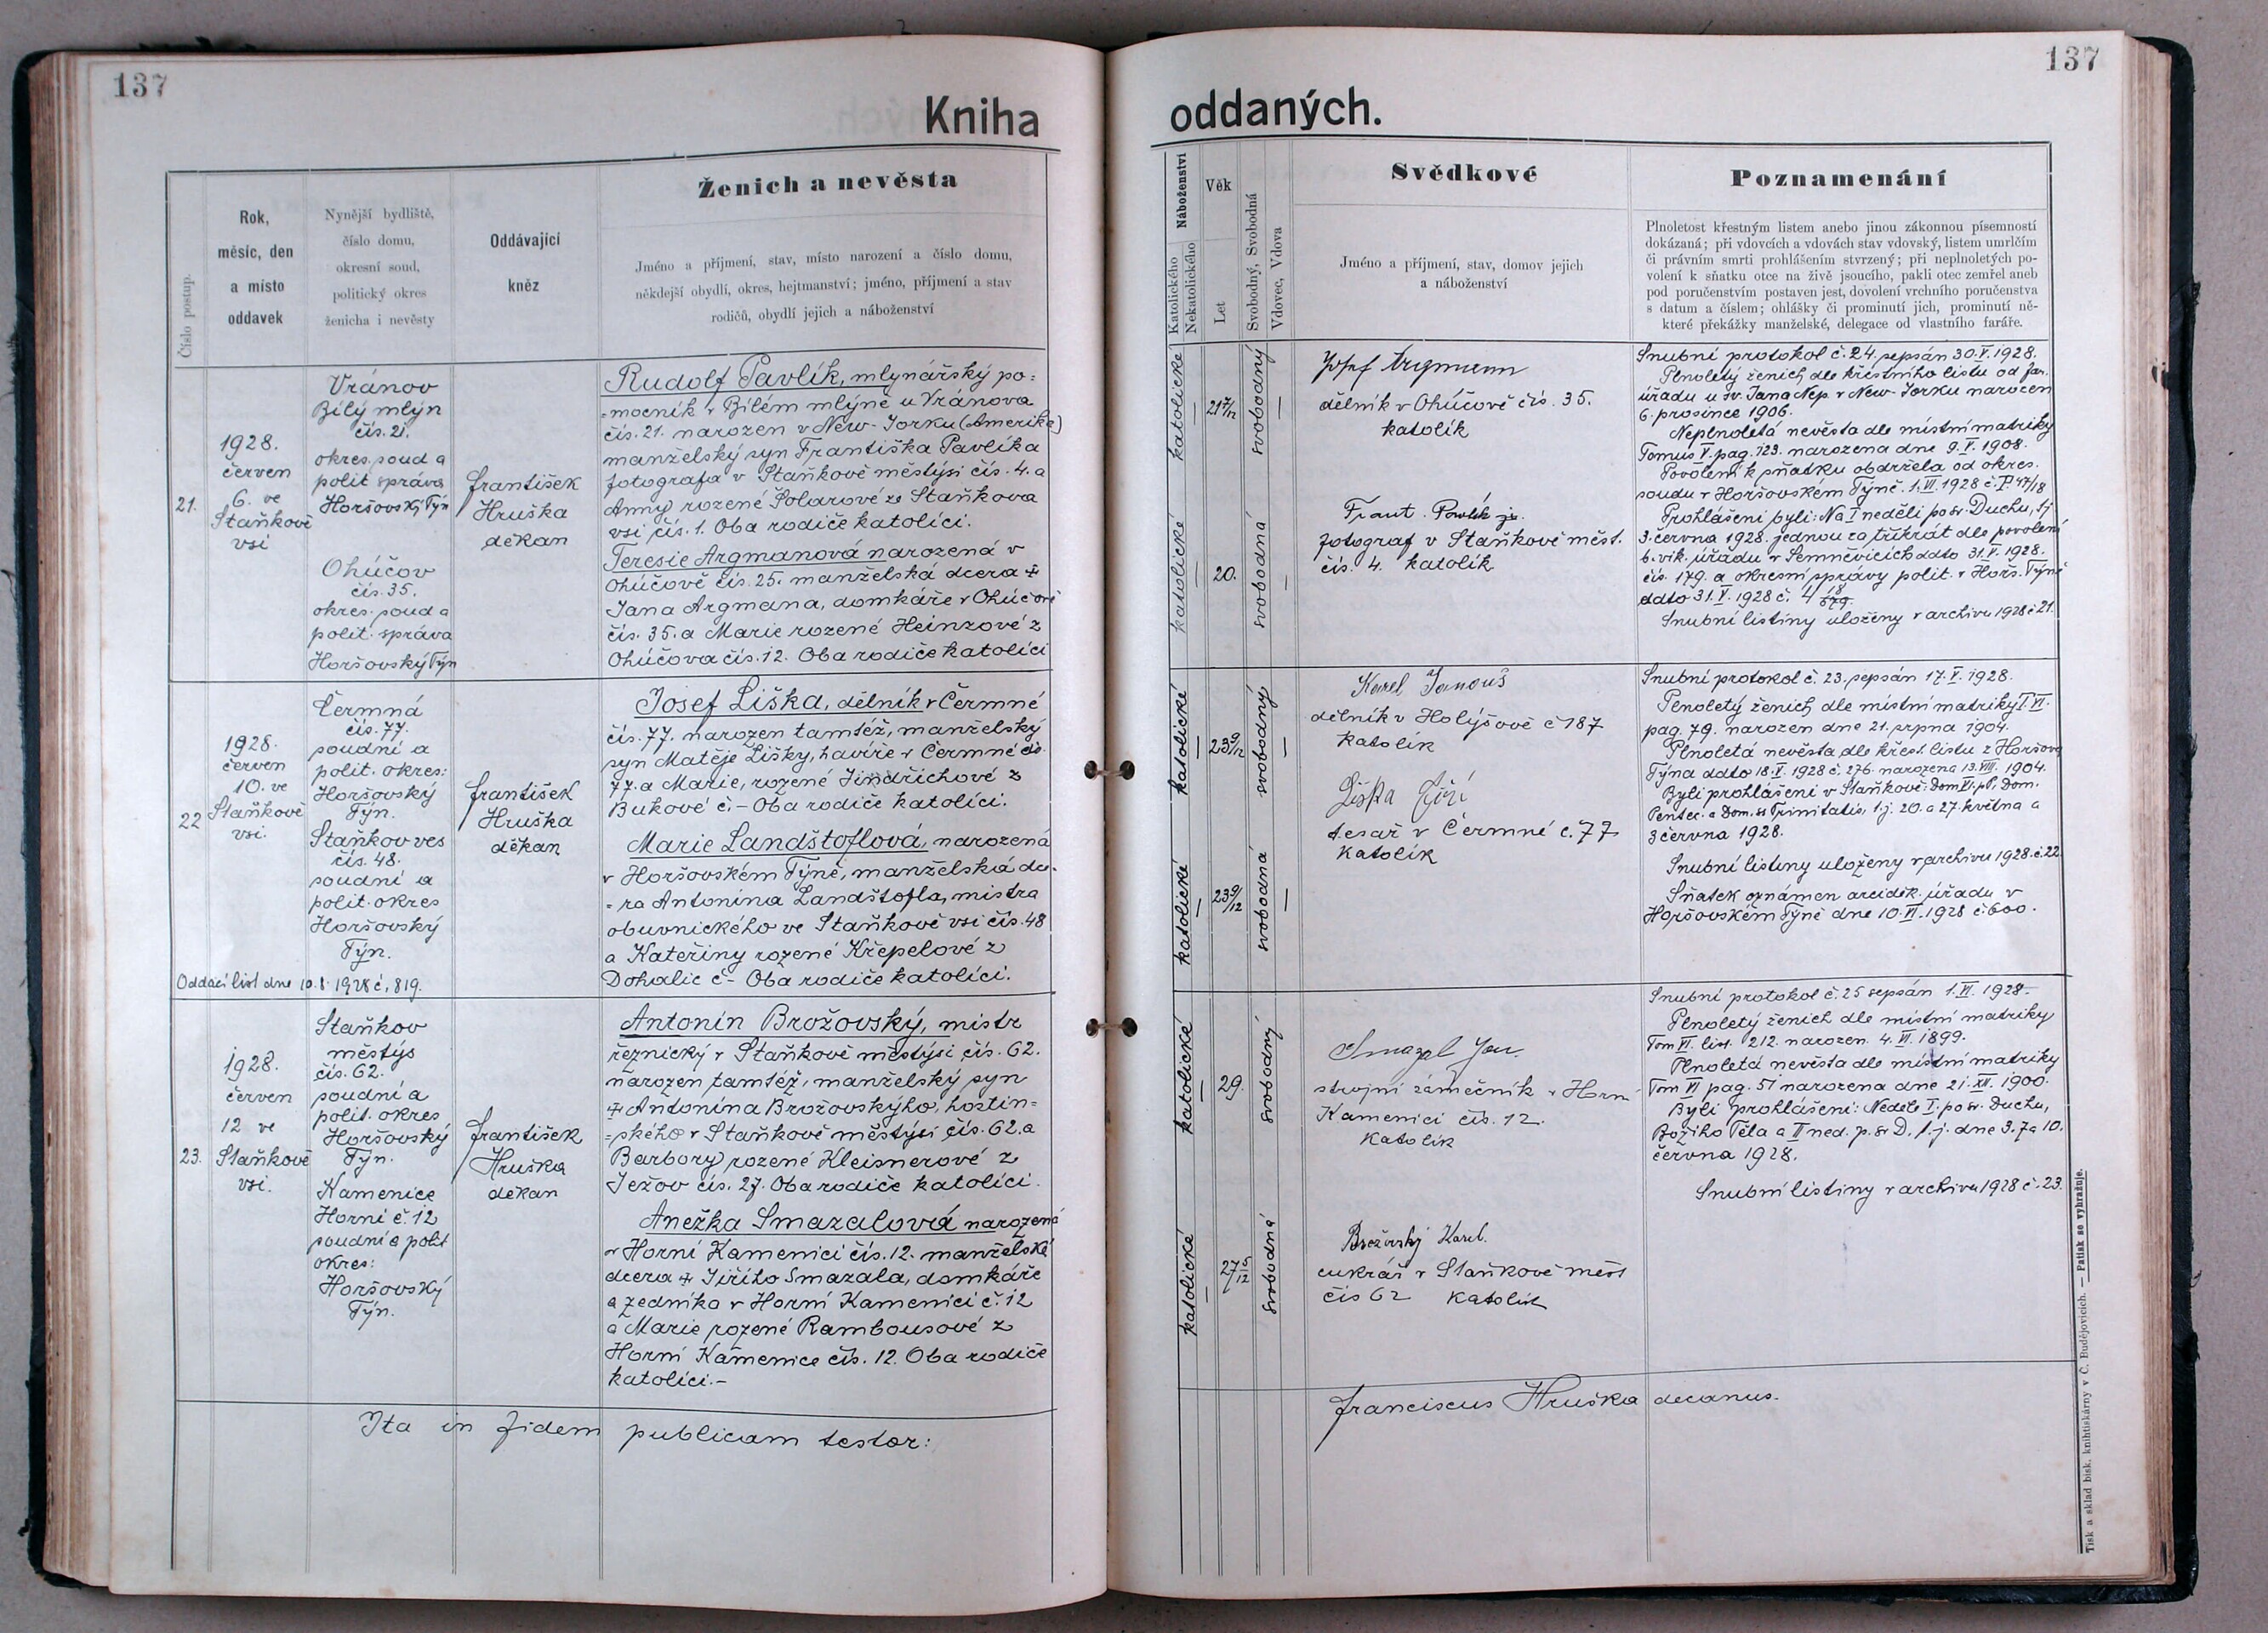 137
Kniha
Číslo postup.
Rok,
měsíc, den
a místo
oddavek
Nynější bydliště,
číslo domu,
okresní soud,
politický okres
ženicha i nevěsty
Oddávající
kněz
Ženich a nevěsta
Jméno a příjmení, stav, místo narození a číslo domu,
někdejší obydlí, okres, hejtmanství; jméno, příjmení a stav
rodičů, obydlí jejich a náboženství
21.
1928.
červen
6. ve
Staňkově
vsi
Vránov
Bílý mlýn
čís. 21.
okres. soud a
polit správa
Horšovský Týn
Ohúčov
čís. 35.
okres. soud a
polit. správa
Horšovský Týn
František
Hruška
děkan
Rudolf Pavlík, mlynářský po=
=mocník v Bílém mlýně u Vránova
čís. 21. narozen v New-Jorku (Amerika)
manželský syn Františka Pavlíka
fotografa v Staňkově městýsi čís. 4. a
Anny rozené Šolarové ze Staňkova
vsi čís. 1. Oba rodiče katolíci.
Teresie Argmanová narozená v
Ohúčově čís. 25. manželská dcera +
Jana Argmana, domkáře v Ohúčově
čís. 35. a Marie rozené Heinzové z
Ohúčova čís. 12. Oba rodiče katolíci
22
1928.
červen
10. ve
Staňkově
vsi.
Čermná
čís. 77.
soudní a
polit. okres:
Horšovský
Týn.
Staňkov ves
čís. 48.
soudní a
polit. okres
Horšovský
Týn.
František
Hruška
děkan
Josef Liška, dělník v Čermné
čís. 77. narozen tamtéž, manželský
syn Matěje Lišky, havíře v Čermné čís.
77. a Marie, rozené Jindřichové z
Bukové č. – Oba rodiče katolíci.
Marie Landštoflová, narozená
v Horšovském Týně, manželská dce-
=ra Antonína Landštofla, mistra
obuvnického ve Staňkově vsi čís. 48
a Kateřiny rozené Křepelové z
Dohalic č – Oba rodiče katolíci.
Oddací list dne 10. 1928 č. 819.
23.
1928.
červen
12 ve
Staňkově
vsi.
Staňkov
městýs
čís. 62.
soudní a
polit. okres
Horšovský
Týn.
Kamenice
Horní č. 12
soudní a polit
okres:
Horšovský
Týn.
František
Hruška
děkan
Antonín Brožovský, mistr
řeznický v Staňkově městýsi čís. 62.
narozen tamtéž, manželský syn
+ Antonína Brožovskýho, hostin=
=ského v Staňkově městýsi čís. 62. a
Barbory rozené Kleisnerové z
Ježov čís. 27. Oba rodiče katolíci.
Anežka Smazalová narozená
v Horní Kamenici čís. 12. manželská
dcera + Jiřího Smazala, domkáře
a zedníka v Horní Kamenici č. 12
a Marie rozené Rambousové z
Horní Kamenice čís. 12. Oba rodiče
katolíci.–
Ita in fidem publicam testor:
137
oddaných.
Náboženství
Katolického
Nekatolického
Věk
Let
Svobodný, Svobodná
Vdovec, Vdova
Svědkové
Jméno a příjmení, stav, domov jejich
a náboženství
Poznamenání
Plnoletost křestným listem anebo jinou zákonnou písemností
dokázaná; při vdovcích a vdovách stav vdovský, listem umrlčím
či právním smrti prohlášením stvrzený; při neplnoletých po-
volení k sňatku otce na živě jsoucího, pakli otec zemřel aneb
pod poručenstvím postaven jest, dovolení vrchního poručenstva
s datum a číslem; ohlášky či prominutí jich, prominutí ně-
které překážky manželské, delegace od vlastního faráře.
katolické
21 7/12
svobodný
katolické
20.
svobodná
Josef Argmann
dělník v Ohúčově čís. 35.
katolík
Frant. Pavlík
fotograf v Staňkově měst.
čís. 4. katolík
Snubní protokol č. 24. sepsán 30. V. 1928.
Plnoletý ženich dle křestního listu od far.
úřadu u sv. Jana Nep. v New-Jorku narozen
6. prosince 1906.
Neplnoletá nevěsta dle místní matriky
Tomus V. pag. 123. narozena dne 9. V. 1908.
Povolení k sňatku obdržela od okres.
soudu v Horšovském Týně. 1. VI. 1928 č. P. 47/18
Prohlášeni byli: Na I neděli po sv. Duchu, t.j.
3. června 1928. jednou za třikrát dle povolení
b. vik. úřadu v Semněvicích ddto 31. V. 1928.
čís. 179. a okresní správy polit. v Horš. Týně
ddto 31. V. 1928 č.
Snubní listiny uloženy v archivu 1928 č 21.
katolické
23 9/12
svobodný
katolické
23 9/12
svobodná
Karel Janouš
dělník v Holýšově č 187
katolík
Liška Jiří
tesař v Čermné č. 77
katolík
Snubní protokol č. 23. sepsán 17. V. 1928.
Plnoletý ženich dle místní matriky T. VI.
pag. 79. narozen dne 21. srpna 1904.
Plnoletá nevěsta dle křest. listu z Horšova
Týna ddto 18. V. 1928 č. 276. narozena 13. VIII. 1904.
Byli prohlášeni v Staňkově: Dom VI. p. P. Dom.
Pentec. a Dom. ss Trinitatis, t.j. 20. a 27. května a
3 června 1928.
Snubní listiny uloženy v archivu 1928. č. 22.
Sňatek oznámen arciděk. úřadu v
Horšovském Týně dne 10. VI. 1928 č. 600.
katolické
29.
svobodný
katolické
27 5/12
svobodná
Smazal Jan.
strojní zámečník v Horní
Kamenici čís. 12.
katolík
Brožovský Karel.
cukrář v Staňkově měst
čís 62 katolík
Snubní protokol č. 25 sepsán 1. VI. 1928.
Plnoletý ženich dle místní matriky
Tom VI. list. 212. narozen 4. VI. 1899.
Plnoletá nevěsta dle místní matriky
Tom VI pag. 51 narozena dne 21. XII. 1900.
Byli prohlášeni: Neděle I. po sv. Duchu,
Božího Těla a II ned. p. sv D. t.j. dne 3. 7 a 10.
června 1928.
Snubní listiny v archivu 1928 č. 23.
Franciscus Hruška decanus.
Tisk a sklad bisk. knihtiskárny v Č. Budějovicích. — Patisk se vyhražuje.